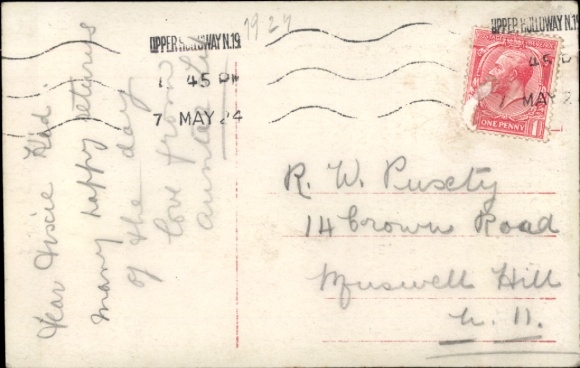 1924
UPPER HOLLOWAY N.19
45 PM
7 MAY 24
UPPER HOLLOWAY N.19
45 P
7 MAY 2
ONE PENNY 1
Dear
many happy returns
of the day
love from
auntie
R. W.
14 Crown Road
Muswell Hill
N. 11.